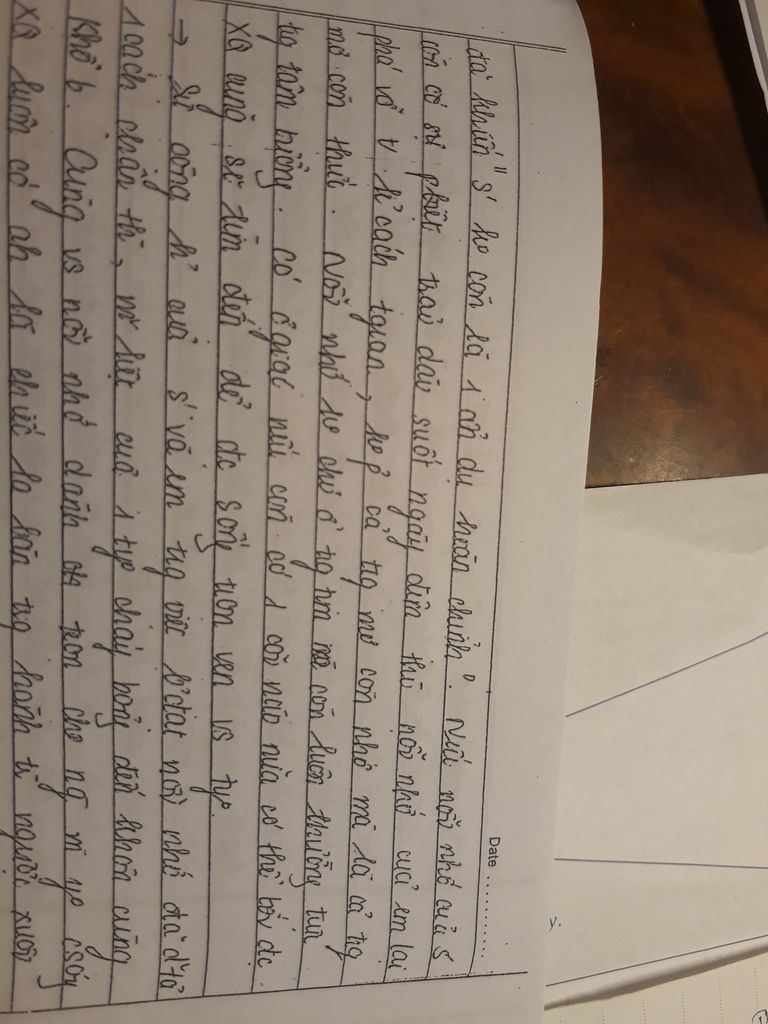 Date ..........
đã khiến" S' ko còn là 1 ẩn dụ hoàn chỉnh". Nếu nỗi nhớ của S
còn có sự phiêu trải dài suốt ngày đêm thì nỗi nhớ của em lại
phá vỡ v li cách tgian, ko ở cả tg mơ còn nhớ mà là cả tg
mơ còn thức. Nỗi nhớ ko chỉ ở tg tim mà còn luôn thường tựa
tg tâm tưởng. Có c giác nếu còn có 1 cõi nào nữa có thể tới đc
xq cũng sẽ tìm đến để đc sống trọn vẹn vs ty.
→ Sự cộng h' quả S' và em tg việc b'đạt nỗi nhớ đã d'tả
1 cách chân th', m' liệt của 1 ty cháy bỏng đến khôn cùng
Khổ 6. Cùng vs nỗi nhớ dành trọn cho ng m y csóng
XQ luôn có ah là chiếc la bàn tg hành tr ngược xuôi